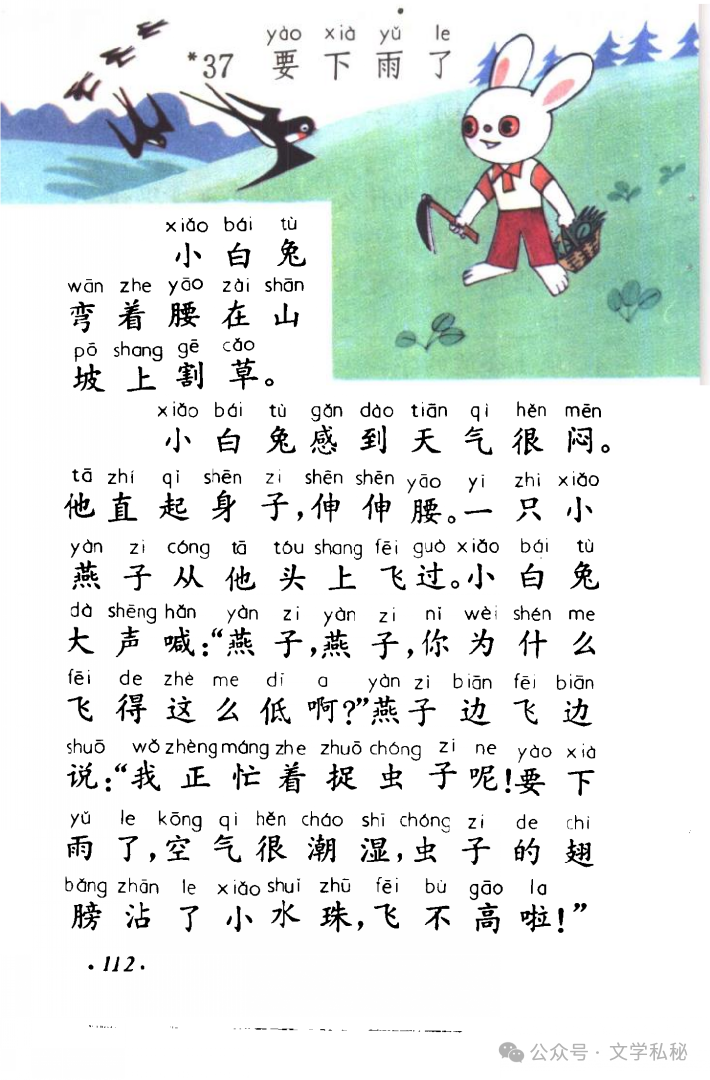 yào xià yǔ le
*37 要下雨了
xiǎo bái tù
小白兔
wān zhe yāo zài shān
弯着腰在山
pō shang gē cǎo
坡上割草。
xiǎo bái tù gǎn dào tiān qì hěn mēn
小白兔感到天气很闷。
tā zhí qǐ shēn zi shēn shēn yāo yì zhī xiǎo
他直起身子,伸伸腰。一只小
yàn zi cóng tā tóu shang fēi guò xiǎo bái tù
燕子从他头上飞过。小白兔
dà shēng hǎn yàn zi yàn zi nǐ wèi shén me
大声喊:“燕子,燕子,你为什么
fēi de zhè me dī a yàn zi biān fēi biān
飞得这么低啊?”燕子边飞边
shuō wǒ zhèng máng zhe zhuō chóng zi ne yào xià
说:“我正忙着捉虫子呢!要下
yǔ le kōng qì hěn cháo shī chóng zi de chì
雨了,空气很潮湿,虫子的翅
bǎng zhān le xiǎo shuǐ zhū fēi bù gāo la
膀沾了小水珠,飞不高啦!”
·112·
公众号·文学私秘